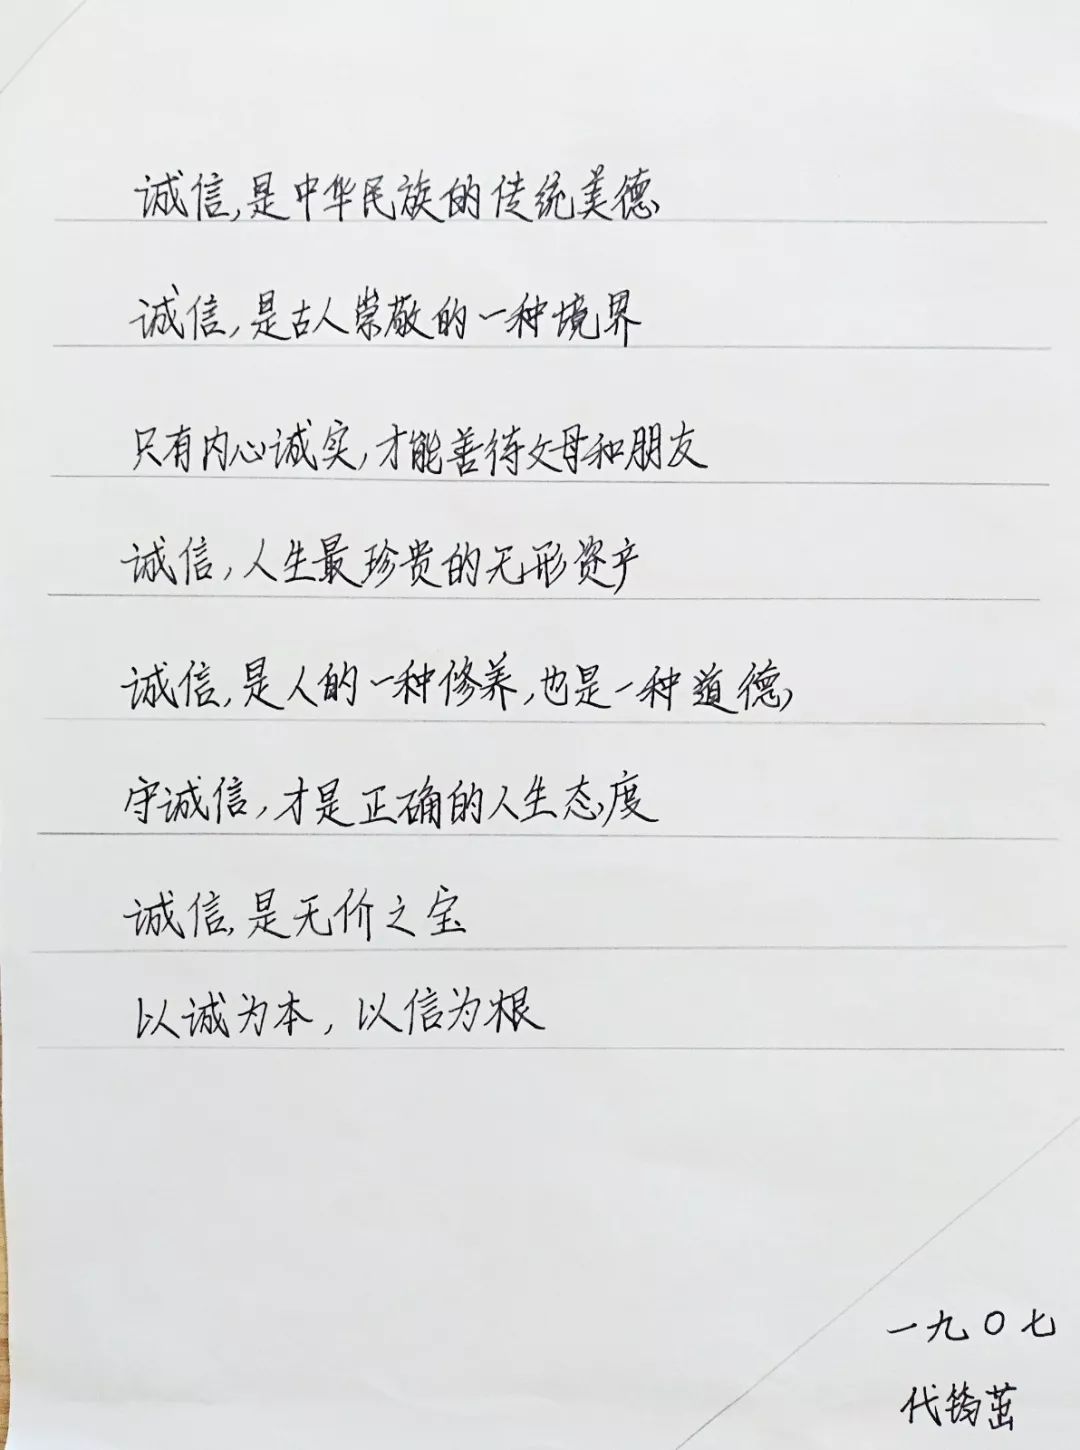 诚信,是中华民族的传统美德
诚信,是古人崇敬的一种境界
只有内心诚实,才能善待父母和朋友
诚信,人生最珍贵的无形资产
诚信,是人的一种修养,也是一种道德
守诚信,才是正确的人生态度
诚信,是无价之宝
以诚为本,以信为根
一九〇七
代筠茁